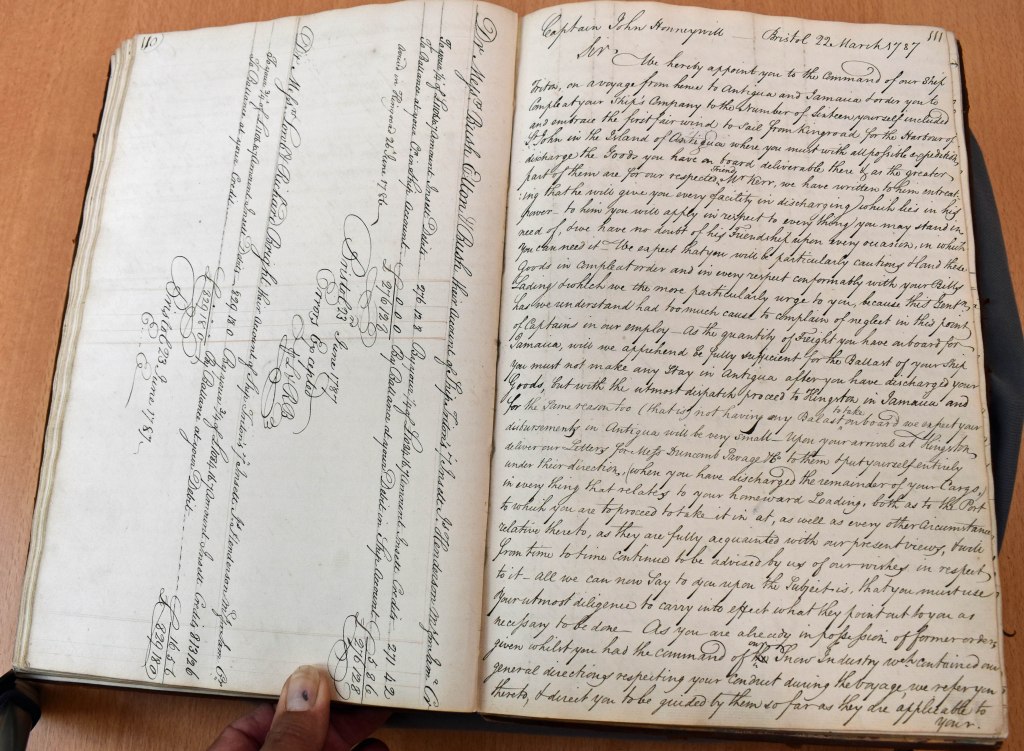 110
Dr. Messrs. Brush Elton & Bush their Account of Ship Triton's & Jennetts
To your 1/4 of Sundry Amount Inset Debits 276 12 8 By your 1/4 of Sundry Amount Insett Credits 271 4 2
To Balance at your Cr. in Ship Account 0 0 0 By Balance at your Debit in Ship Account 5 8 6
£ 276 12 8 £ 276 12 8
Bristol 23d June 1787
Errors Excepted
Dr. Messrs. Lowbridge & Richard Bright their Account of Ship Triton's & Jennetts
To your 3/4 of Sundry Amount Inset Debits 829 18 0 By your 3/4 of Sundry Amount Insett Credits 813 12 6
To Balance at your Credit By Balance at your Debit 16 5 6
£ 829 18 0 £ 829 18 0
Bristol 23 June 1787
111
Captain John Honneywill — Bristol 22 March 1787
Sir, We hereby appoint you to the Command of our Ship
Triton, on a voyage from hence to Antigua and Jamaica & order you to
Compleat your Ship's Company to the Number of Sixteen yourself included
and embrace the first fair wind to Sail from Kingroad for the Harbour of
St. John in the Island of Antigua where you must with all possible expedition
discharge the Goods you have on board deliverable there & as the greater
part of them are for our respected Friend Mr Kerr, we have written to him entreat-
:ing that he will give you every facility in discharging which lies in his
power – to him you will apply in respect to every thing you may stand in
need of, & we have no doubt of his Friendship upon every occasion, in which
you can need it – We expect that you will be particularly cautious to land these
Goods in compleat order and in every respect conformably with your Bills
Lading & which we the more particularly urge to you, because this Gentn.
has we understand had too much cause to complain of neglect in this point
of Captains in our employ – As the quantity of Freight you have on board for
Jamaica, will we apprehend be fully sufficient for the Ballast of your Ship
you must not make any Stay in Antigua after you have discharged your
Goods, but with the utmost dispatch proceed to Kingston in Jamaica and
for the same reason too (that is not having any Balast to take on board) we expect your
disbursements in Antigua will be very small – Upon your arrival at Kingston
deliver our Letters for Messrs Duncomb Pavage & Co to them & put yourself entirely
under their direction, (when you have discharged the remainder of your Cargo,)
in every thing that relates to your homeward Loading, both as to the Port
to which you are to proceed to take it in at, as well as every other Circumstance
relative thereto, as they are fully acquainted with our present views, & will
from time to time continue to be advised by us of our wishes in respect
to it – all we can now say to you upon the Subject is, that you must use
your utmost diligence to carry into effect what they point out to you as
necessary to be done – As you are already in possession of former orders
given whilst you had the Command of our Snow Industry wch. contained our
general directions respecting your conduct during the Voyage, we refer you
thereto, & direct you to be guided by them so far as they are applicable to
your